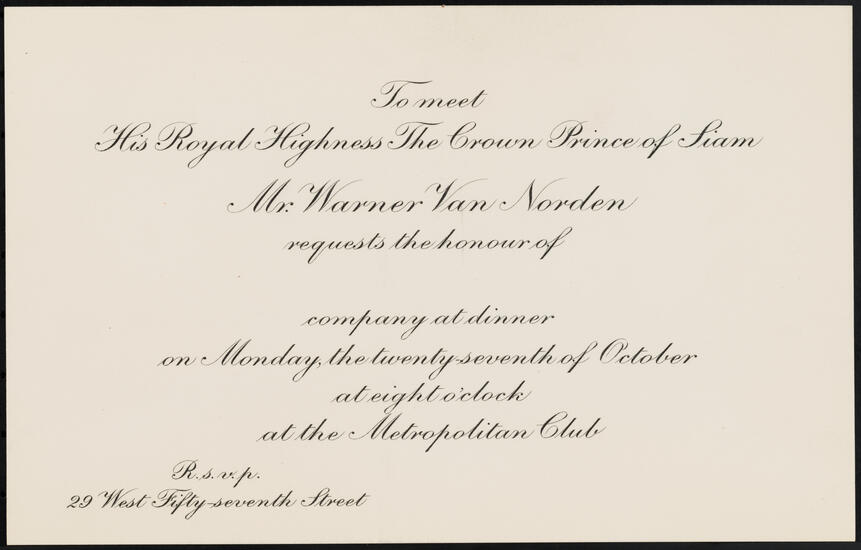 To meet
His Royal Highness The Crown Prince of Siam
Mr. Warner Van Norden
requests the honour of
company at dinner
on Monday, the twenty-seventh of October
at eight o'clock
at the Metropolitan Club
R.s.v.p.
29 West Fifty-seventh Street